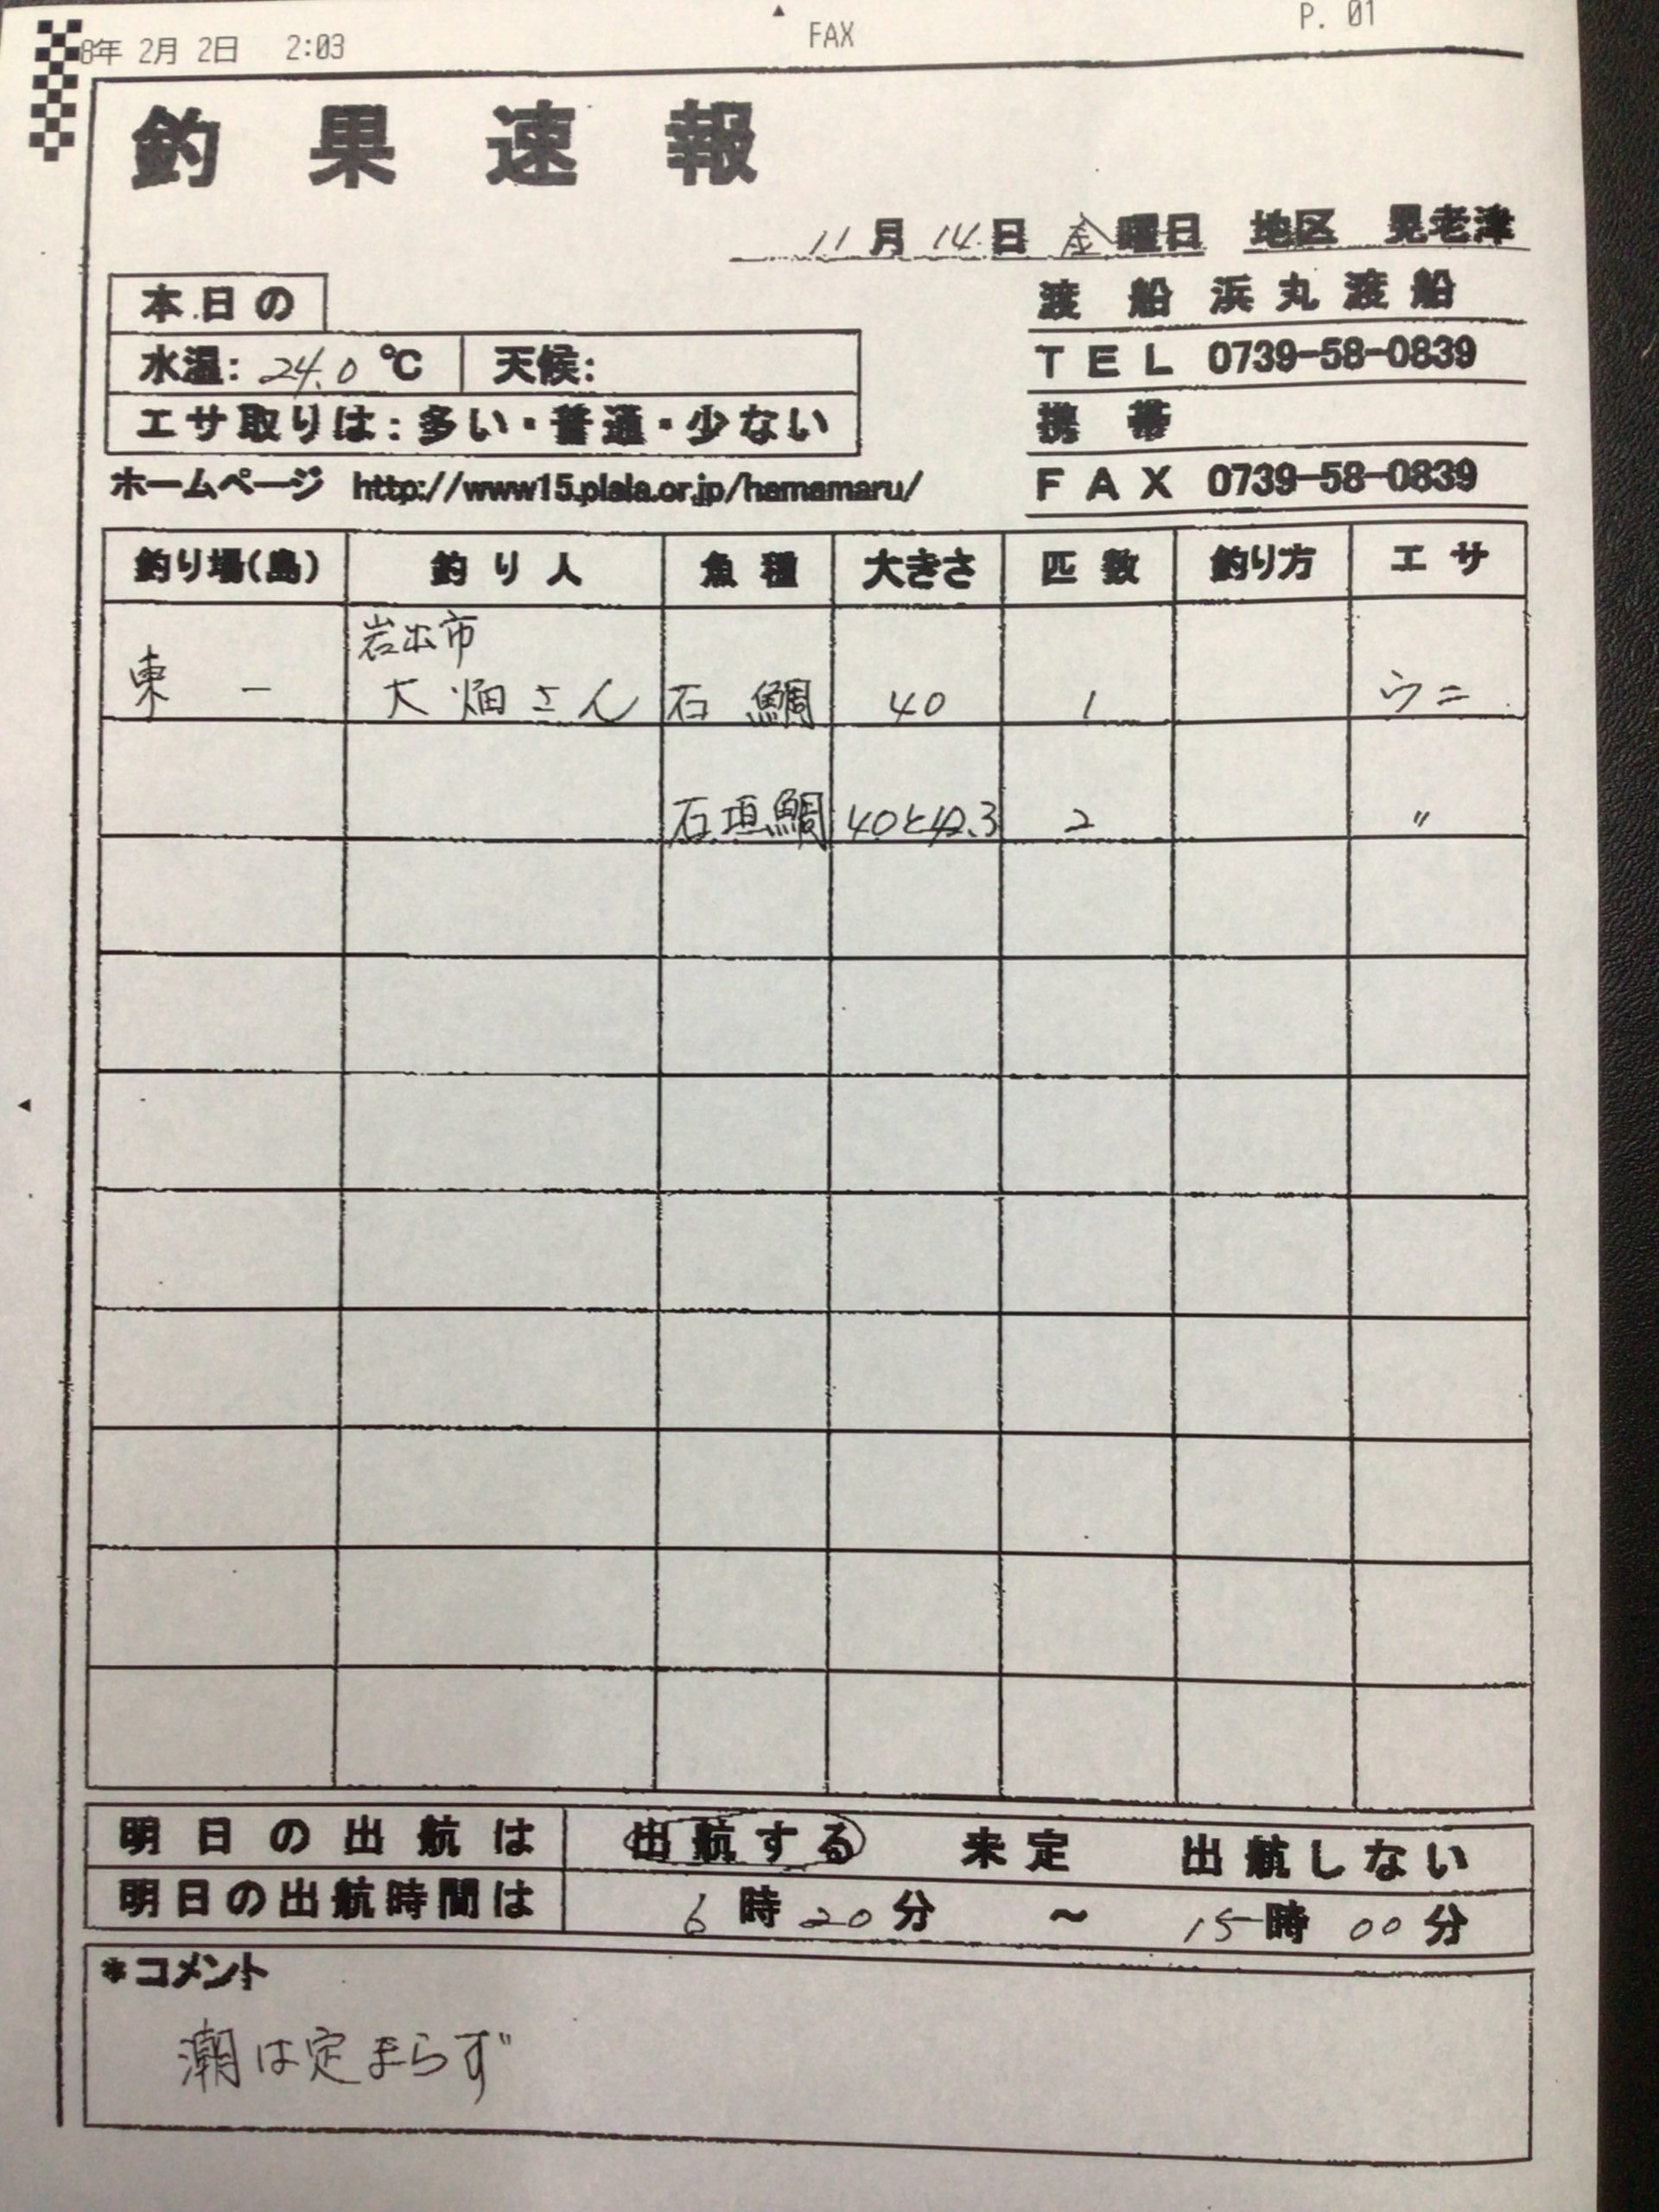 8年 2月 2日 2:03 FAX P. 01
釣果速報
11月14日 金曜日 地区 見老津
本日の
水温: 24.0 ℃ 天候:
エサ取りは: 多い・普通・少ない
渡船 浜丸渡船
TEL 0739-58-0839
携帯
FAX 0739-58-0839
ホームページ http://www15.plala.or.jp/hamamaru/
釣り場(島) 釣り人 魚種 大きさ 匹数 釣り方 エサ
岩出市
東一 大畑さん 石鯛 40 1 ウニ
石垣鯛 40と42.3 2 〃
明日の出航は 出航する 未定 出航しない
明日の出航時間は 6時20分 ~ 15時00分
*コメント
潮は定まらず